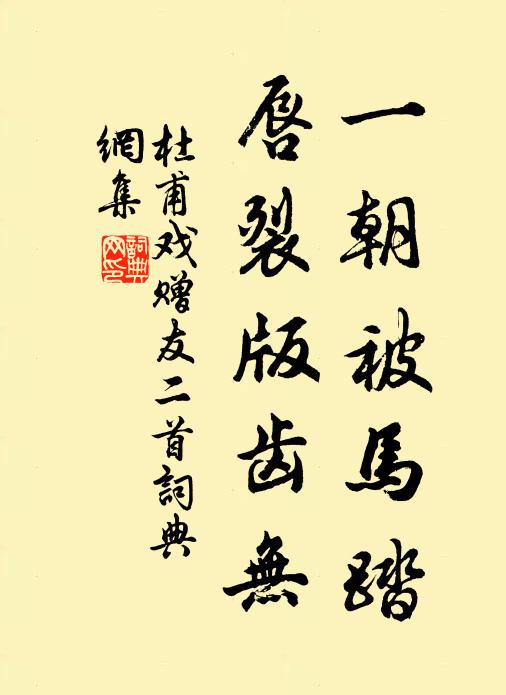 一朝被馬踏
唇裂版齿無
杜甫戏赠友二首詞典
網集
詞典
网印